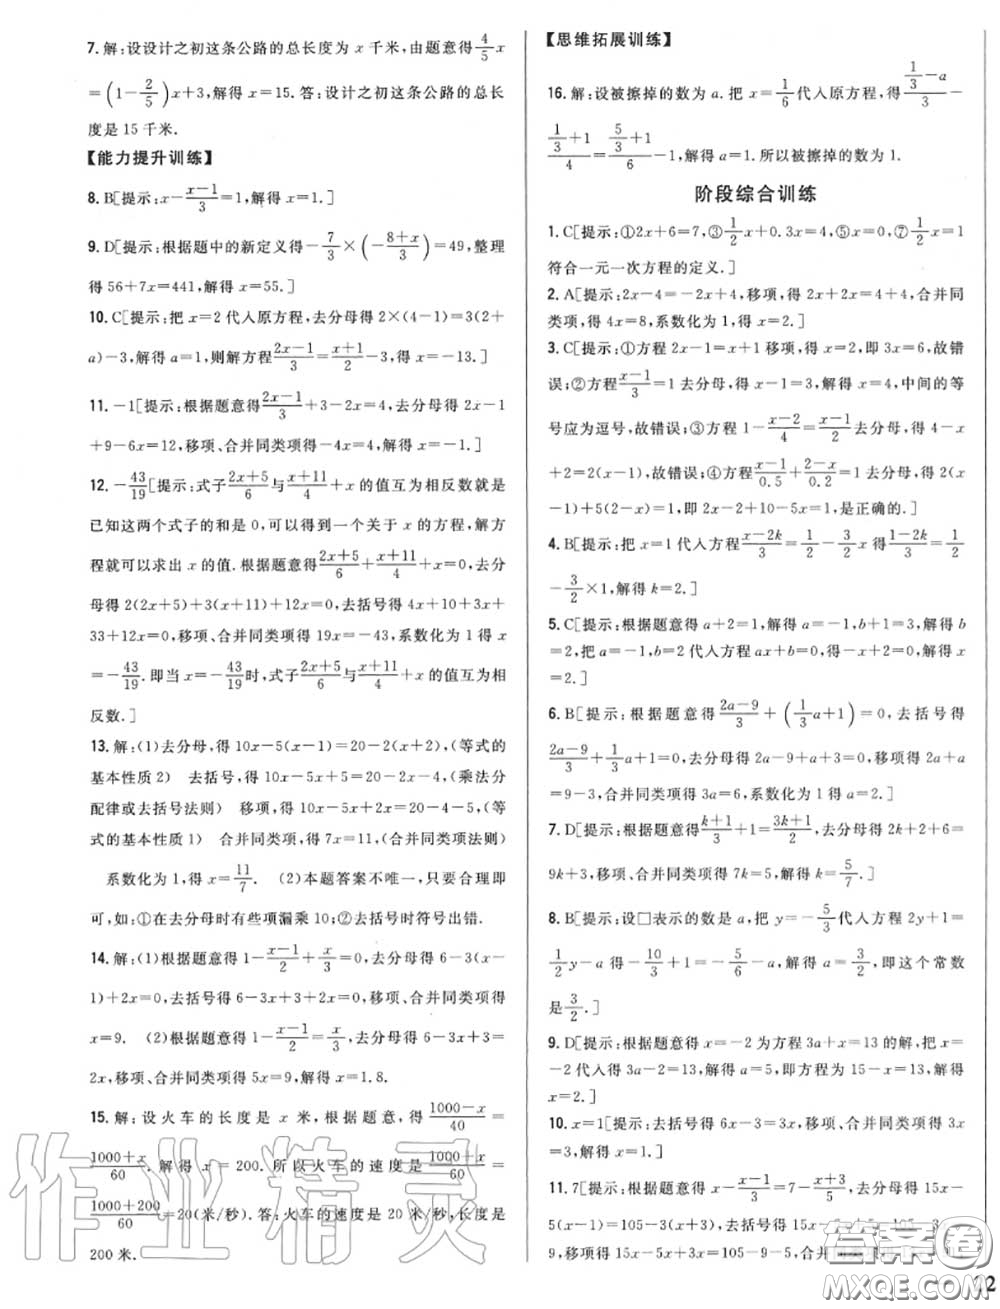 7. 解:设设计之初这条公路的总长度为 x 千米,由题意得 4/5 x
=(1-2/5)x+3,解得 x=15. 答:设计之初这条公路的总长
度是 15 千米.
【能力提升训练】
8. B[提示:x-(x-1)/3=1,解得 x=1.]
9. D[提示:根据题中的新定义得-7/3×(-(8+x)/3)=49,整理
得 56+7x=441,解得 x=55.]
10. C[提示:把 x=2 代入原方程,去分母得 2×(4-1)=3(2+
a)-3,解得 a=1,则解方程(2x-1)/3=(x+1)/3-2,得 x=-13.]
11. -1[提示:根据题意得(2x-1)/3+3-2x=4,去分母得 2x-1
+9-6x=12,移项、合并同类项得-4x=4,解得 x=-1.]
12. -43/19[提示:式子(2x+5)/6与(x+11)/4+x 的值互为相反数就是
已知这两个式子的和是 0,可以得到一个关于 x 的方程,解方
程就可以求出 x 的值. 根据题意得(2x+5)/6+(x+11)/4+x=0,去分
母得 2(2x+5)+3(x+11)+12x=0,去括号得 4x+10+3x+
33+12x=0,移项、合并同类项得 19x=-43,系数化为 1 得 x
=-43/19. 即当 x=-43/19时,式子(2x+5)/6与(x+11)/4+x 的值互为相
反数.]
13. 解:(1)去分母,得 10x-5(x-1)=20-2(x+2),(等式的
基本性质 2) 去括号,得 10x-5x+5=20-2x-4,(乘法分
配律或去括号法则) 移项,得 10x-5x+2x=20-4-5,(等
式的基本性质 1) 合并同类项,得 7x=11,(合并同类项法则)
系数化为 1,得 x=11/7. (2)本题答案不唯一,只要合理即
可,如:①在去分母时有些项漏乘 10;②去括号时符号出错.
14. 解:(1)根据题意得 1-(x-1)/2+x/3=0,去分母得 6-3(x-
1)+2x=0,去括号得 6-3x+3+2x=0,移项、合并同类项得
x=9. (2)根据题意得 1-(x-1)/2=x/3,去分母得 6-3x+3=
2x,移项、合并同类项得 5x=9,解得 x=1.8.
15. 解:设火车的长度是 x 米,根据题意,得 (1000-x)/40=
(1000+x)/60. 解得 x=200. 所以火车的速度是 (1000+x)/60=
(1000+200)/60=20(米/秒). 答:火车的速度是 20 米/秒,长度是
200 米.
【思维拓展训练】
16. 解:设被擦掉的数为 a. 把 x=1/6代入原方程,得(1/3-a)/3-
(1/3+1)/4=(5/3+1)/6-1,解得 a=1. 所以被擦掉的数为 1.
阶段综合训练
1. C[提示:①2x+6=7,③1/2x+0.3x=4,⑤x=0,⑦1/2x=1
符合一元一次方程的定义.]
2. A[提示:2x-4=-2x+4,移项,得 2x+2x=4+4,合并同
类项,得 4x=8,系数化为 1,得 x=2.]
3. C[提示:①方程 2x-1=x+1 移项,得 x=2,即 3x=6,故错
误;②方程(x-1)/3=1 去分母,得 x-1=3,解得 x=4,中间的等
号应为逗号,故错误;③方程 1-(x-2)/4=(x-1)/2去分母,得 4-x
+2=2(x-1),故错误;④方程(x-1)/0.5+(2-x)/0.2=1 去分母,得 2(x
-1)+5(2-x)=1,即 2x-2+10-5x=1,是正确的.]
4. B[提示:把 x=1 代入方程(x-2k)/3=1/2-3/2x 得(1-2k)/3=1/2
-3/2×1,解得 k=2.]
5. C[提示:根据题意得 a+2=1,解得 a=-1,b+1=3,解得 b
=2,把 a=-1,b=2 代入方程 ax+b=0,得-x+2=0,解得 x
=2.]
6. B[提示:根据题意得(2a-9)/3+(1/3a+1)=0,去括号得
(2a-9)/3+1/3a+1=0,去分母得 2a-9+a+3=0,移项得 2a+a
=9-3,合并同类项得 3a=6,系数化为 1,得 a=2.]
7. D[提示:根据题意得(k+1)/3+1=(3k+1)/2,去分母得 2k+2+6=
9k+3,移项、合并同类项得 7k=5,解得 k=5/7.]
8. B[提示:设□表示的数是 a,把 y=-5/3代入方程 2y+1=
1/2y-a 得-10/3+1=-5/6-a,解得 a=3/2,即这个常数
是3/2.]
9. D[提示:根据题意得 x=-2 为方程 3a+x=13 的解,把 x=
-2 代入得 3a-2=13,解得 a=5,即方程为 15-x=13,解得
x=2.]
10. x=1[提示:去括号得 6x-3=3x,移项、合并同类项得 3x
=3,解得 x=1.]
11. 7[提示:根据题意得 x-(x-1)/3=7-(x+3)/5,去分母得 15x-
5(x-1)=105-3(x+3),去括号得 15x-5x+5=105-3x-
9,移项得 15x-5x+3x=105-9-5,合并同类项得
作业精灵
答案圈
MXQE.COM